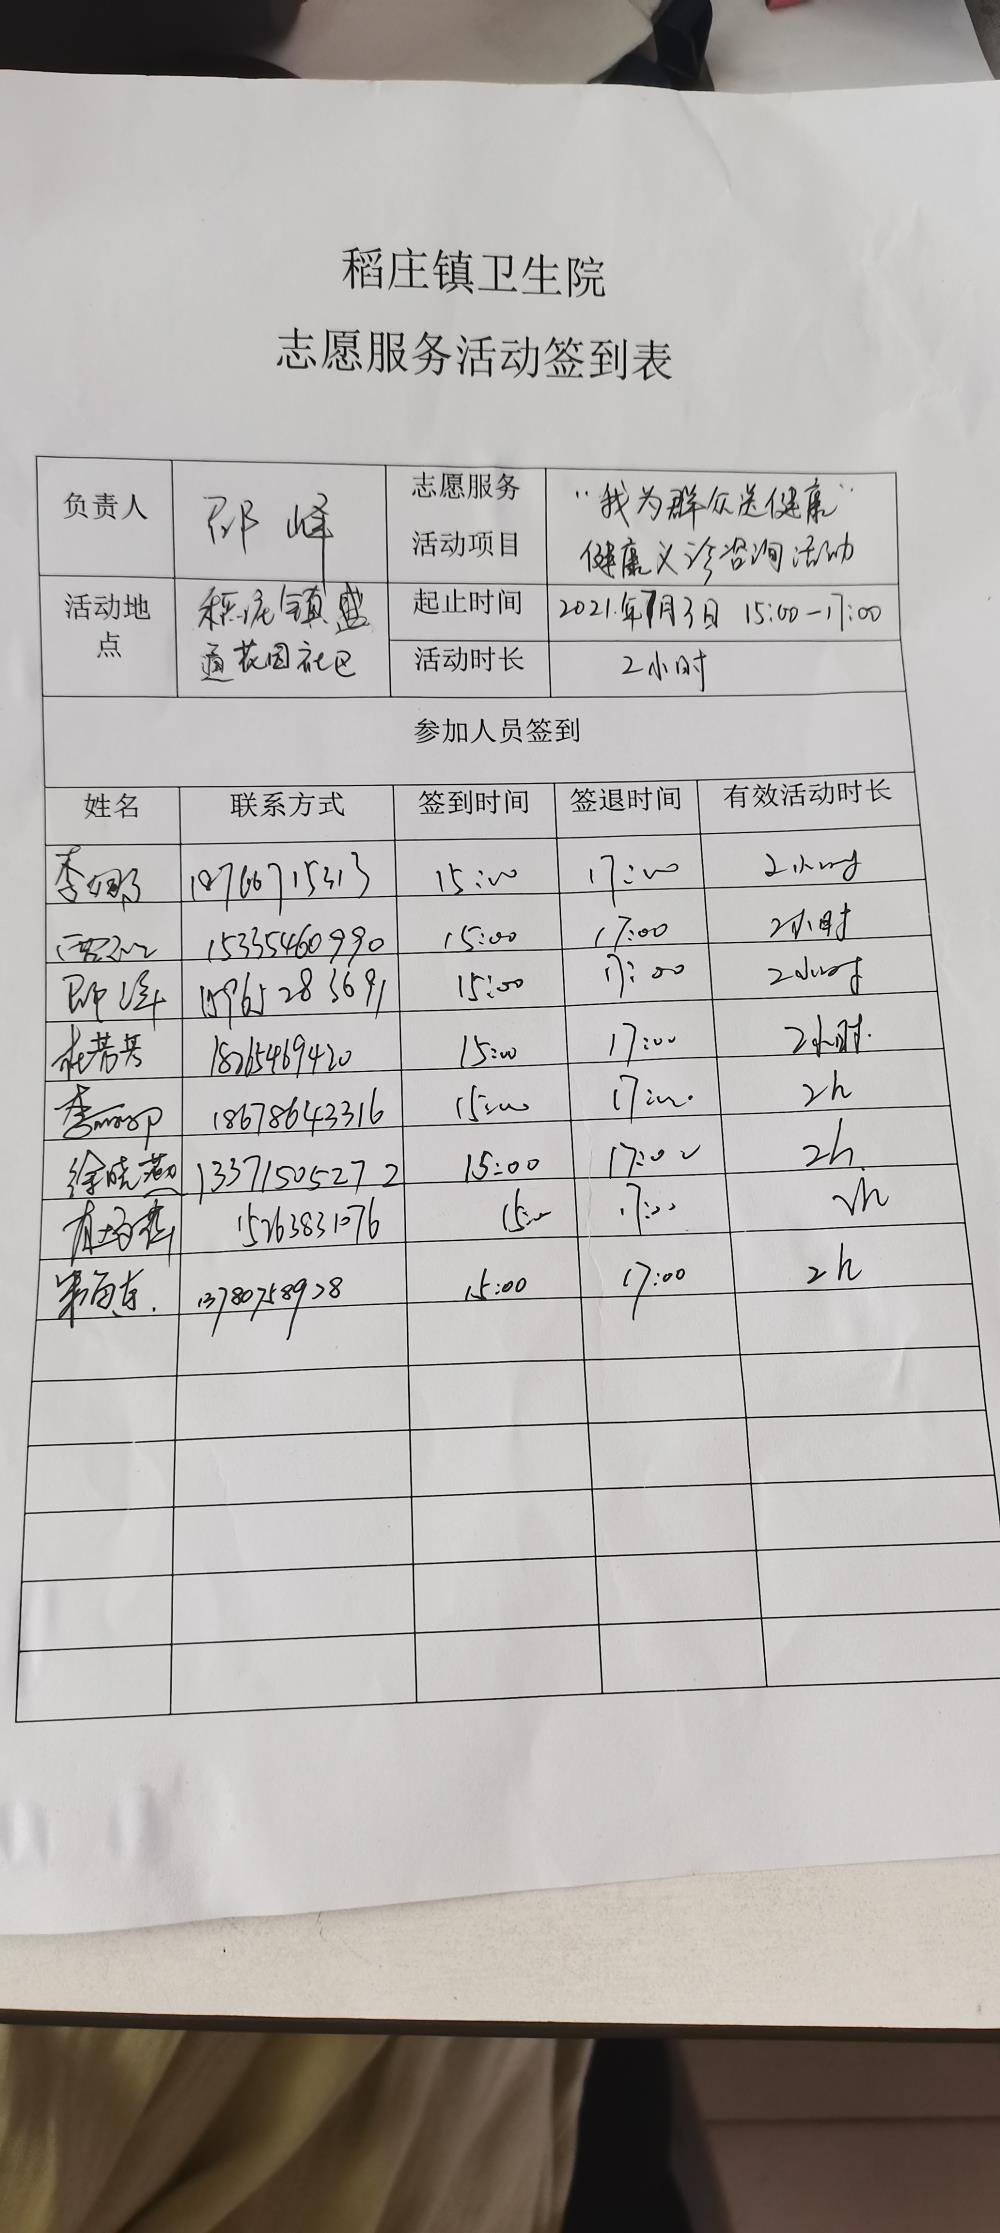 稻庄镇卫生院
志愿服务活动签到表
负责人 邵峰 志愿服务活动项目 “我为群众送健康”健康义诊咨询活动
活动地点 稻庄镇盛通花园社区 起止时间 2021年7月3日 15:00—17:00
活动时长 2小时
参加人员签到
姓名 联系方式 签到时间 签退时间 有效活动时长
李娜 18766715313 15:00 17:00 2小时
15335460990 15:00 17:00 2小时
邵峰 15965283691 15:00 17:00 2小时
杜芳芳 18265469420 15:00 17:00 2小时.
李 18678643316 15:00 17:00. 2h
徐晓燕 13371505272 15:00 17:00 2h.
15263831076 15:00 17:00 2h
13780758928 15:00 17:00 2h